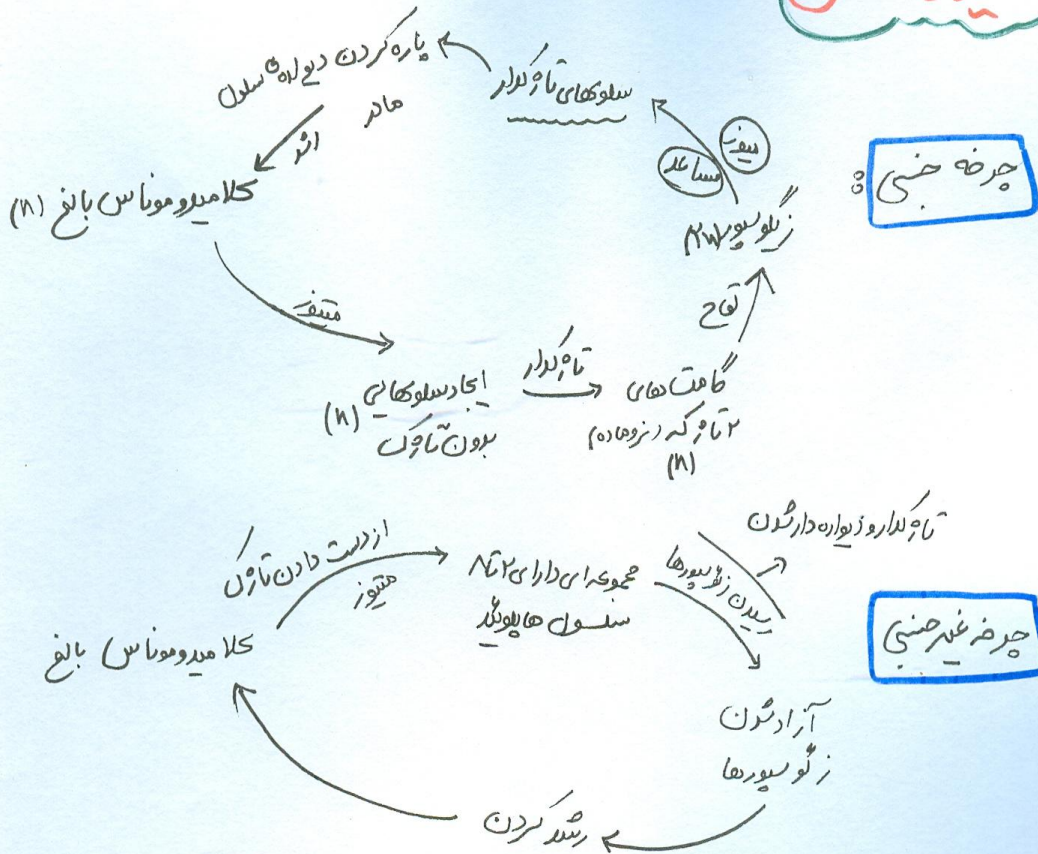 چرخه جنسی :
زیگوسپور (2n)
میوز
مساعد
سلولهای تاژکدار
پاره کردن دیواره سلول
مادر
کلامیدوموناس بالغ (n)
میتوز
ایجاد سلولهایی (n)
بدون تاژک
تاژکدار
گامت های
۲ تاژکه (نر و ماده)
(n)
لقاح
چرخه غیر جنسی
کلامیدوموناس بالغ
از دست دادن تاژک
میتوز
مجموعه ای دارای ۲ تا ۸
سلول هاپلوئید
رسیدن زئوسپورها
تاژکدار و دیواره دار شدن
آزاد شدن
زئوسپورها
رشد کردن